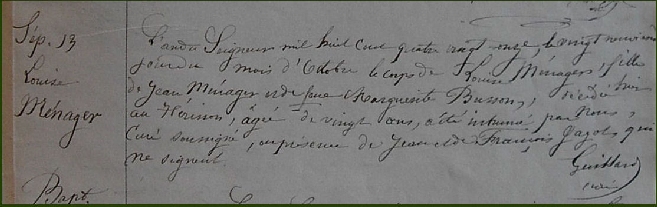 Sép. 13
Louise
Ménager
L'an du Seigneur mil huit cent quatre vingt onze, le vingt neuvième
jour du mois d'Octobre le corps de Louise Ménager, fille
de Jean Ménager et de feue Marguerite Busson, décédée hier
au Hérisson, âgée de vingt ans, a été inhumé par Nous,
Curé soussigné, en présence de Jean et de François Jagot, qui
ne signent.
Guittard
curé
Bapt.